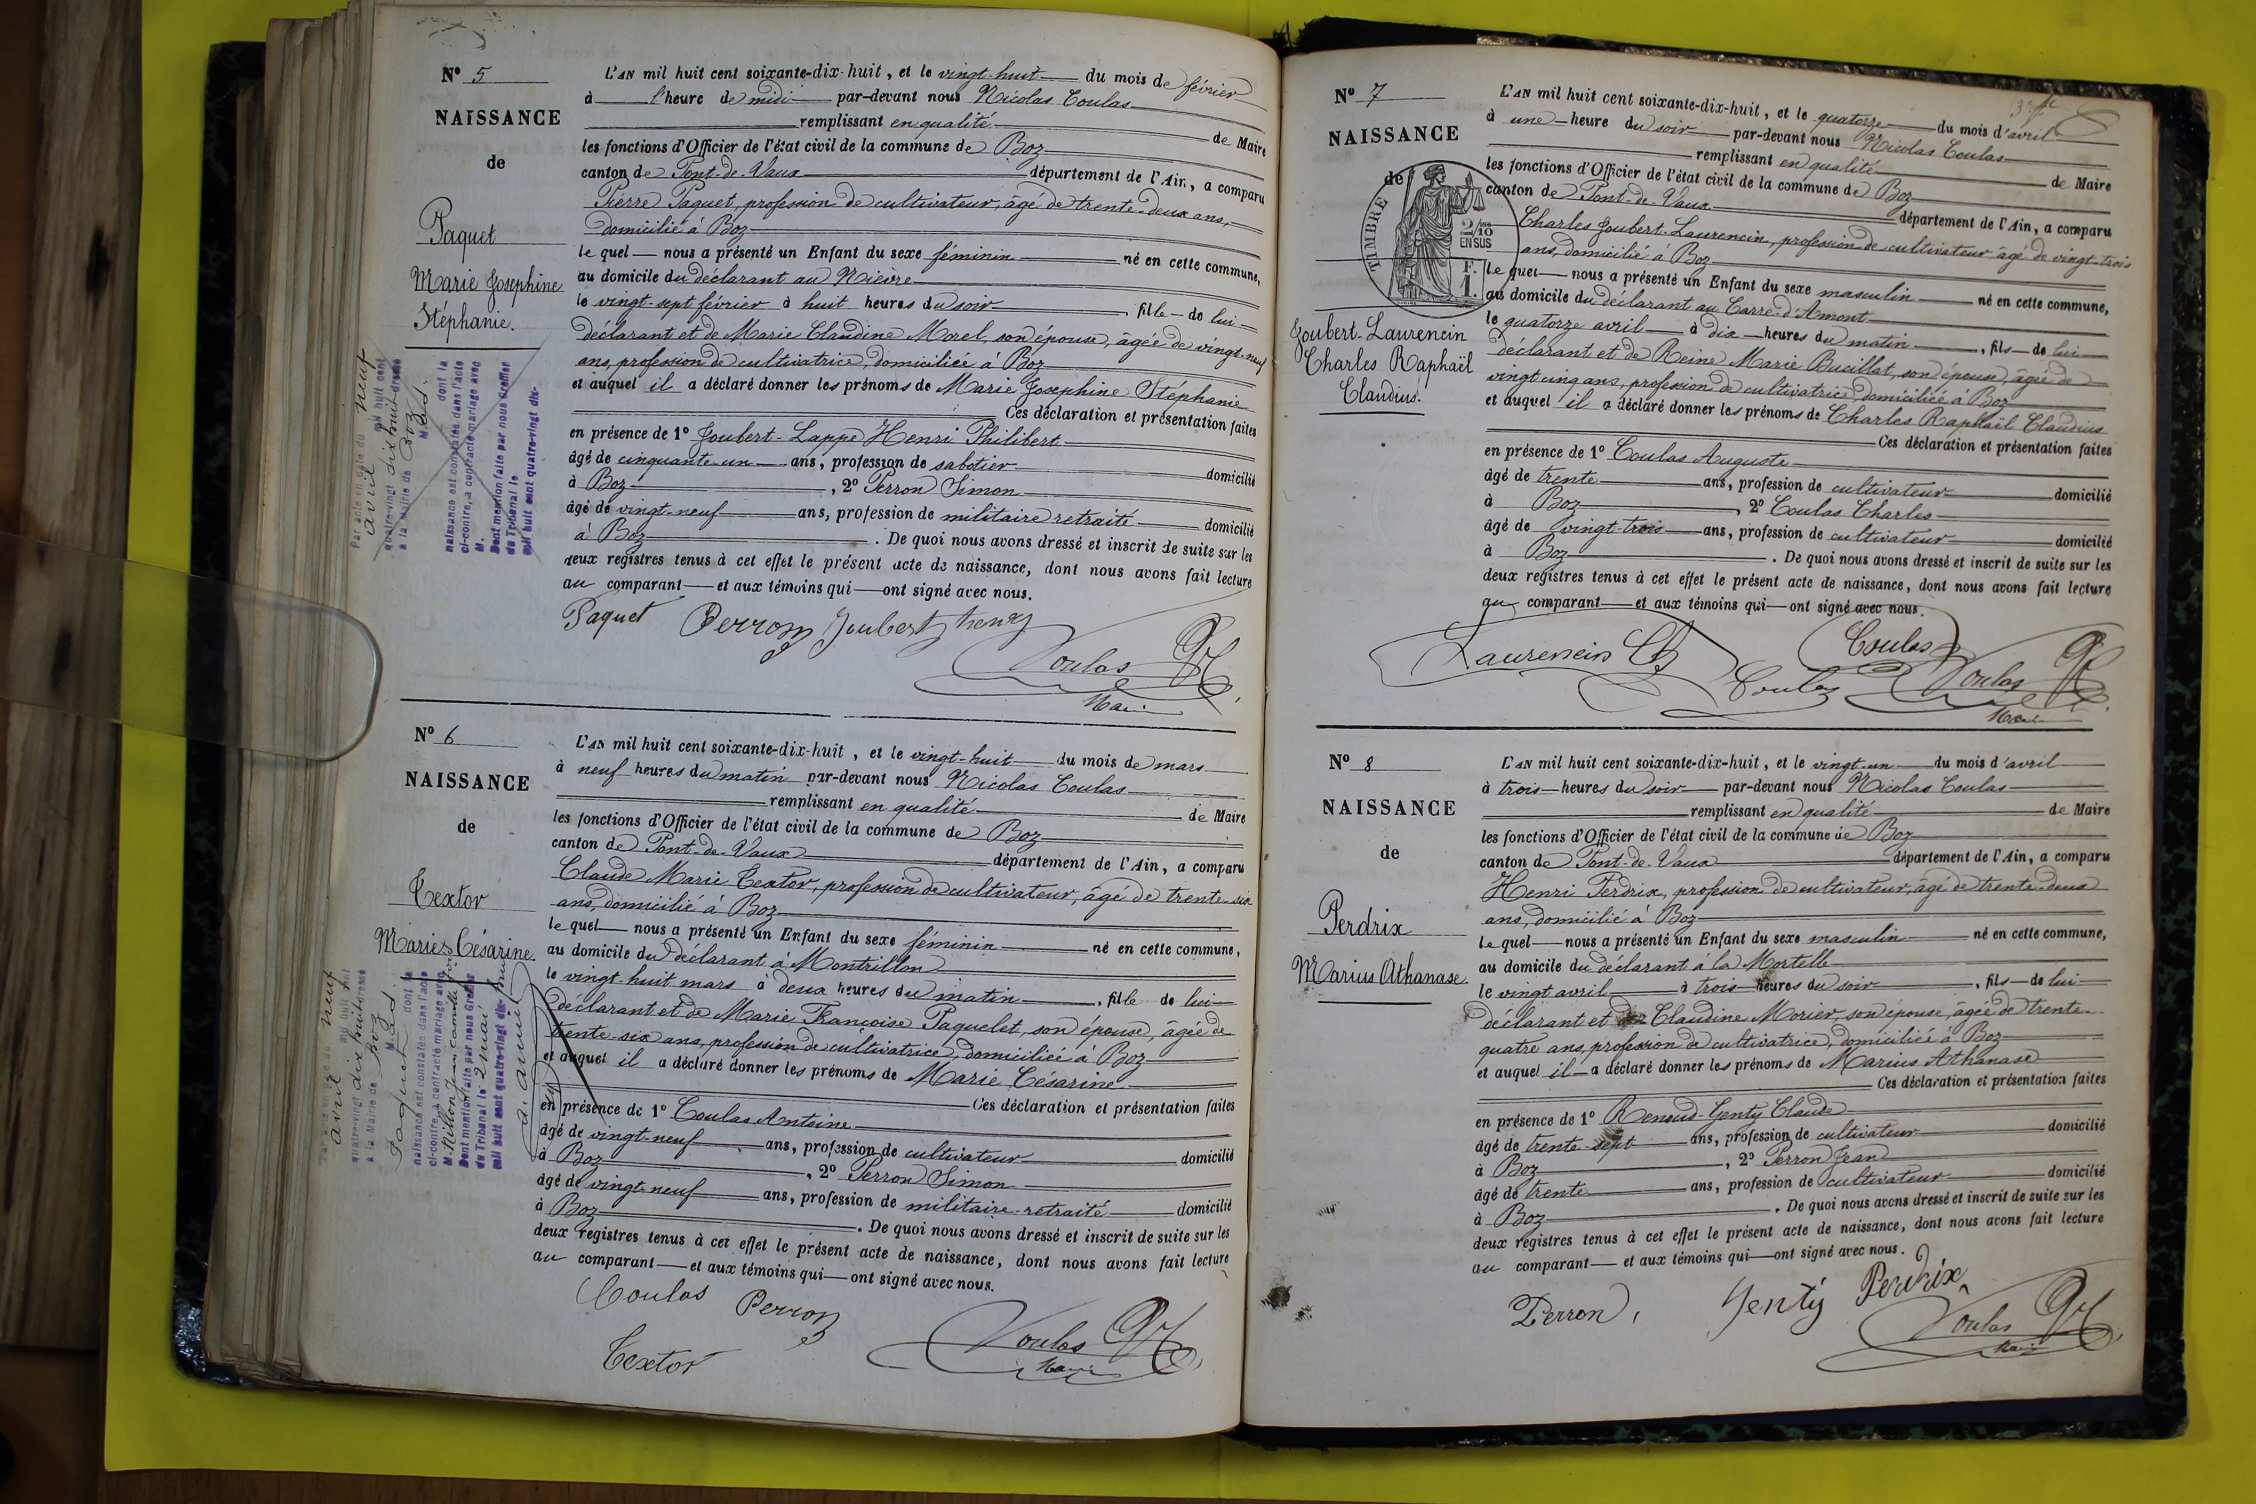 N° 5
NAISSANCE
de
Paquet
Marie Josephine
Stéphanie.
L'AN mil huit cent soixante-dix-huit, et le vingt-huit du mois de février
à l'heure de midi par-devant nous Nicolas Coulas
remplissant en qualité de Maire
les fonctions d'Officier de l'état civil de la commune de Boz
canton de Pont-de-Vaux département de l'Ain, a comparu
Pierre Paquet, profession de cultivateur, âgé de trente-deux ans,
domicilié à Boz
le quel nous a présenté un Enfant du sexe féminin né en cette commune,
au domicile du déclarant au Nièvre
le vingt-sept février à huit heures du soir, fille de lui
déclarant et de Marie Claudine Morel, son épouse, âgée de vingt-neuf
ans, profession de cultivatrice, domiciliée à Boz
et auquel il a déclaré donner les prénoms de Marie Josephine Stéphanie
Ces déclaration et présentation faites
en présence de 1° Joubert-Lappe Henri Philibert
âgé de cinquante-un ans, profession de sabotier domicilié
à Boz, 2° Perron Simon
âgé de vingt-neuf ans, profession de militaire retraité domicilié
à Boz. De quoi nous avons dressé et inscrit de suite sur les
deux registres tenus à cet effet le présent acte de naissance, dont nous avons fait lecture
au comparant et aux témoins qui ont signé avec nous.
Paquet Perron Joubert henry
Coulas
Maire
Par acte en date du neuf
avril mil huit cent
quatre-vingt dix huit dressé
à la Mairie de Boz
M.
dont la
naissance est constatée dans l'acte
ci-contre, a contracté mariage avec
M.
Dont mention faite par nous Greffier
du Tribunal le
mil huit cent quatre-vingt dix-
N° 6
NAISSANCE
de
Textor
Marie Césarine.
L'AN mil huit cent soixante-dix-huit, et le vingt-huit du mois de mars
à neuf heures du matin par-devant nous Nicolas Coulas
remplissant en qualité de Maire
les fonctions d'Officier de l'état civil de la commune de Boz
canton de Pont-de-Vaux département de l'Ain, a comparu
Claude Marie Textor, profession de cultivateur, âgé de trente-six
ans, domicilié à Boz
le quel nous a présenté un Enfant du sexe féminin né en cette commune,
au domicile du déclarant à Montrillon
le vingt-huit mars à deux heures du matin, fille de lui
déclarant et de Marie Françoise Paquelet, son épouse, âgée de
trente-six ans, profession de cultivatrice, domiciliée à Boz
et auquel il a déclaré donner les prénoms de Marie Césarine
Ces déclaration et présentation faites
en présence de 1° Coulas Antoine
âgé de vingt-neuf ans, profession de cultivateur domicilié
à Boz, 2° Perron Simon
âgé de vingt-neuf ans, profession de militaire-retraité domicilié
à Boz. De quoi nous avons dressé et inscrit de suite sur les
deux registres tenus à cet effet le présent acte de naissance, dont nous avons fait lecture
au comparant et aux témoins qui ont signé avec nous.
Coulas Perron
Textor
Coulas
Maire
neuf
avril mil huit cent
quatre-vingt dix huit dressé
à la Mairie de Boz
M.
dont la
naissance est constatée dans l'acte
ci-contre, a contracté mariage avec
M. Millon
Dont mention faite par nous Greffier
du Tribunal le 2 mai
mil huit cent quatre-vingt dix-huit
N° 7
NAISSANCE
de
TIMBRE
2/10
EN SUS
F.
1.
Joubert-Laurencin
Charles Raphaël
Claudius.
L'AN mil huit cent soixante-dix-huit, et le quatorze du mois d'avril
à une heure du soir par-devant nous Nicolas Coulas
remplissant en qualité de Maire
les fonctions d'Officier de l'état civil de la commune de Boz
canton de Pont-de-Vaux département de l'Ain, a comparu
Charles Joubert-Laurencin, profession de cultivateur âgé de vingt-trois
ans, domicilié à Boz
le quel nous a présenté un Enfant du sexe masculin né en cette commune,
au domicile du déclarant au Carre-d'Amont
le quatorze avril à dix heures du matin, fils de lui
déclarant et de Reine Marie Bucillat, son épouse, âgée de
vingt cinq ans, profession de cultivatrice, domiciliée à Boz
et auquel il a déclaré donner les prénoms de Charles Raphaël Claudius
Ces déclaration et présentation faites
en présence de 1° Coulas Auguste
âgé de trente ans, profession de cultivateur domicilié
à Boz, 2° Coulas Charles
âgé de vingt-trois ans, profession de cultivateur domicilié
à Boz. De quoi nous avons dressé et inscrit de suite sur les
deux registres tenus à cet effet le présent acte de naissance, dont nous avons fait lecture
au comparant et aux témoins qui ont signé avec nous.
Laurencin Ch Coulas
Coulas Coulas
Maire
N° 8
NAISSANCE
de
Perdrix
Marius Athanase.
L'AN mil huit cent soixante-dix-huit, et le vingt-un du mois d'avril
à trois heures du soir par-devant nous Nicolas Coulas
remplissant en qualité de Maire
les fonctions d'Officier de l'état civil de la commune de Boz
canton de Pont-de-Vaux département de l'Ain, a comparu
Henri Perdrix, profession de cultivateur, âgé de trente-deux
ans, domicilié à Boz
le quel nous a présenté un Enfant du sexe masculin né en cette commune,
au domicile du déclarant à la Mortelle
le vingt avril à trois heures du soir, fils de lui
déclarant et de Claudine Morier, son épouse, âgée de trente
quatre ans, profession de cultivatrice, domiciliée à Boz
et auquel il a déclaré donner les prénoms de Marius Athanase
Ces déclaration et présentation faites
en présence de 1° Renoud-Genty Claude
âgé de trente-sept ans, profession de cultivateur domicilié
à Boz, 2° Perron Jean
âgé de trente ans, profession de cultivateur domicilié
à Boz. De quoi nous avons dressé et inscrit de suite sur les
deux registres tenus à cet effet le présent acte de naissance, dont nous avons fait lecture
au comparant et aux témoins qui ont signé avec nous.
Perron, Genty Perdrix
Coulas
Maire